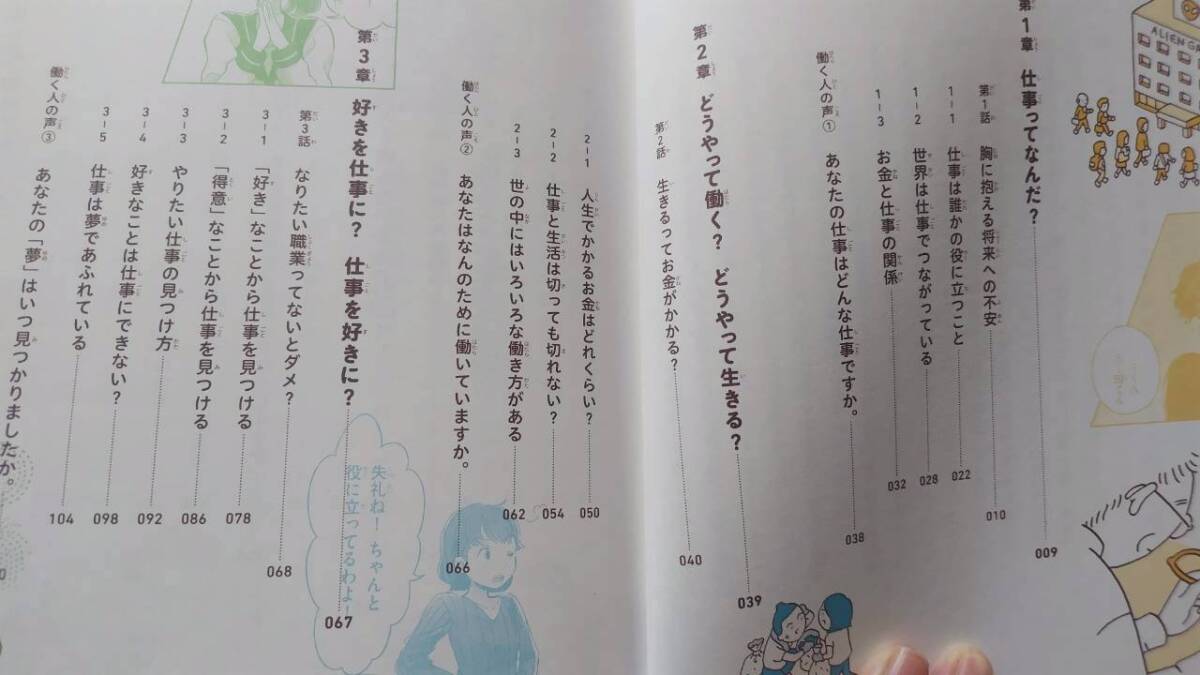 ALIEN GA
第1章 仕事ってなんだ? 009
第1話 胸に抱える将来への不安 010
1-1 仕事は誰かの役に立つこと 022
1-2 世界は仕事でつながっている 028
1-3 お金と仕事の関係 032
働く人の声① あなたの仕事はどんな仕事ですか。 038
第2章 どうやって働く? どうやって生きる? 039
第2話 生きるってお金がかかる? 040
2-1 人生でかかるお金はどれくらい? 050
2-2 仕事と生活は切っても切れない? 054
2-3 世の中にはいろいろな働き方がある 062
働く人の声② あなたはなんのために働いていますか。 066
第3章 好きを仕事に? 仕事を好きに? 067
第3話 なりたい職業ってないとダメ? 068
3-1 「好き」なことから仕事を見つける 078
3-2 「得意」なことから仕事を見つける 086
3-3 やりたい仕事の見つけ方 092
3-4 好きなことは仕事にできない? 098
3-5 仕事は夢であふれている 104
働く人の声③ あなたの「夢」はいつ見つかりましたか。
失礼ね!ちゃんと
役に立ってるわよ!